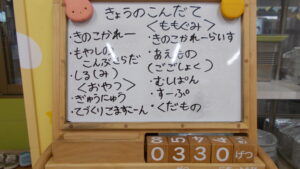 きょうのこんだて
<ももぐみ>
・きのこかれー
・もやしの
こんぶさらだ
・しる(み)
<おやつ>
・ぎゅうにゅう
・てづくりごますこーん
・きのこかれーらいす
・あえもの
(ごごしょく)
・むしぱん
・すーぷ
・くだもの
0330げつ